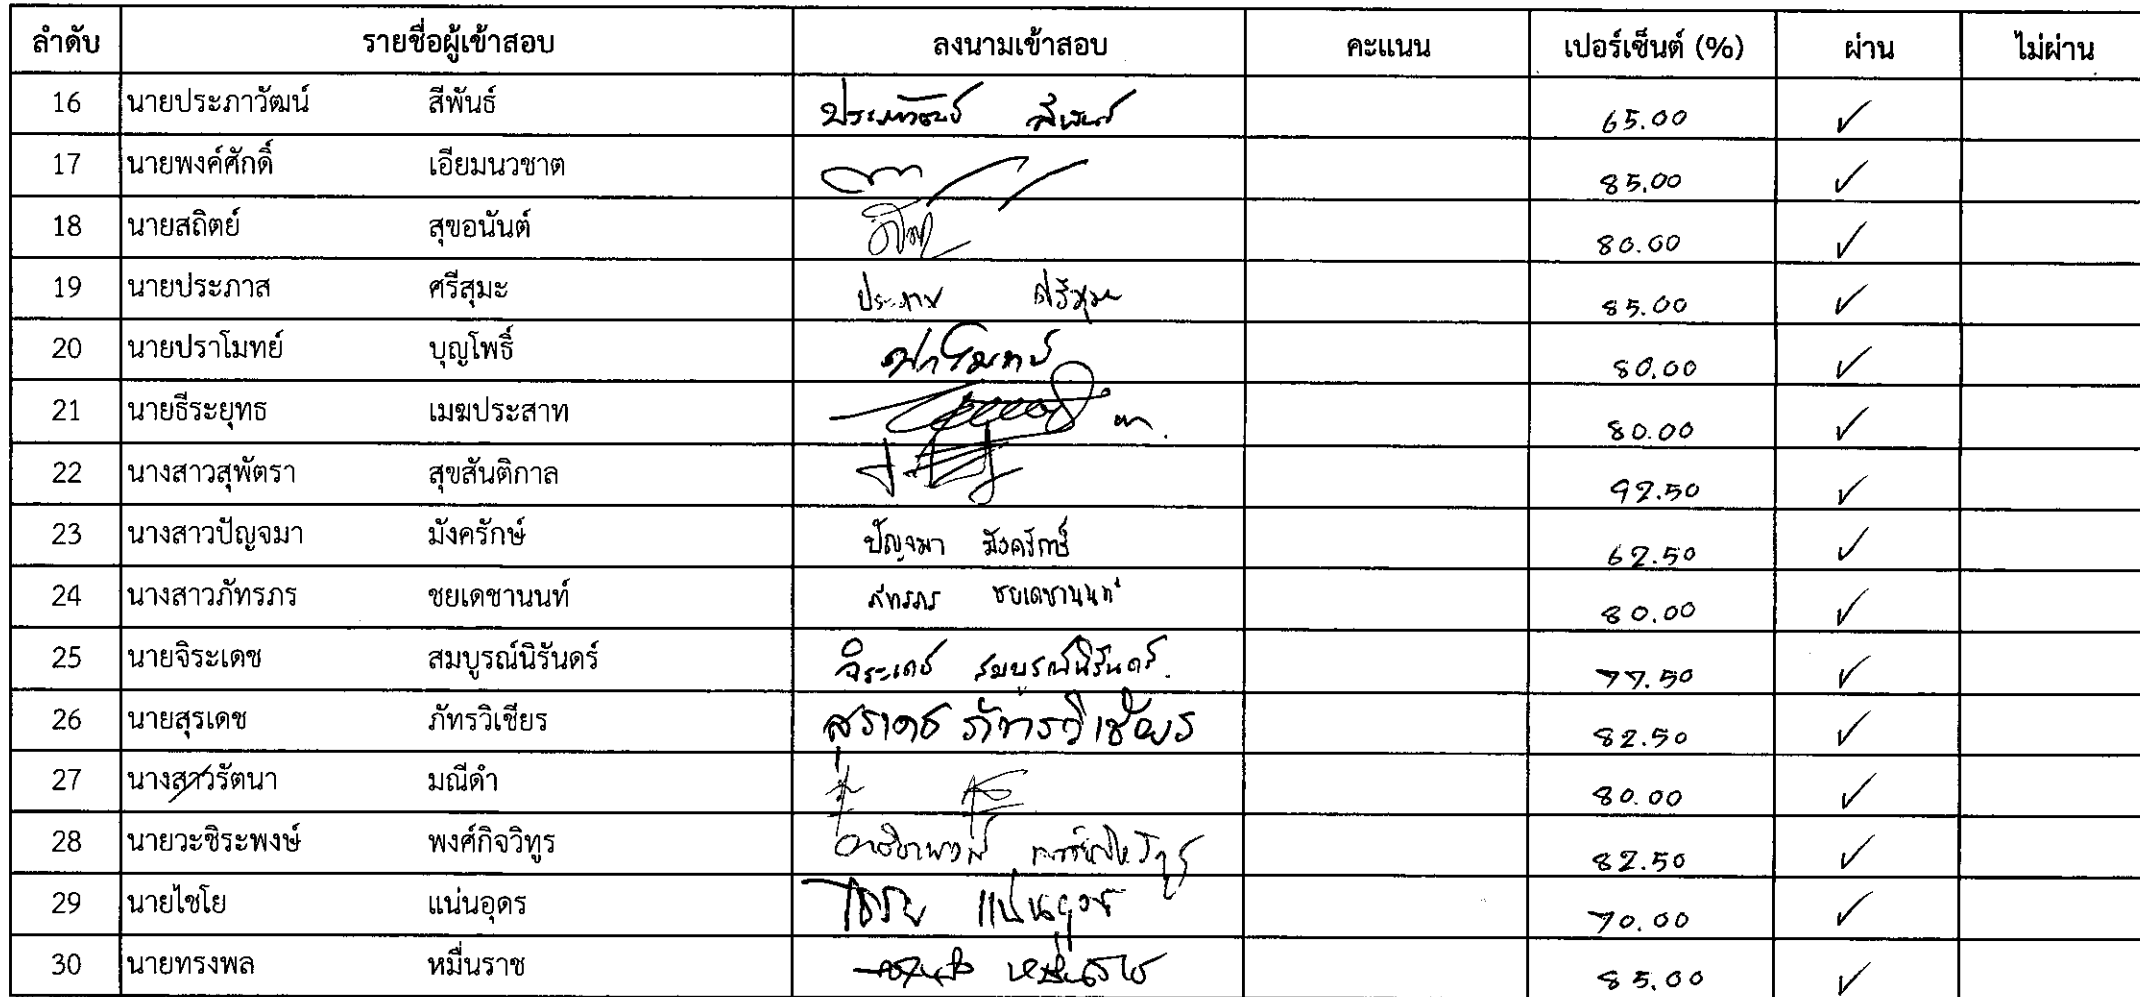 ลำดับ รายชื่อผู้เข้าสอบ ลงนามเข้าสอบ คะแนน เปอร์เซ็นต์ (%) ผ่าน ไม่ผ่าน
16 นายประภาวัฒน์ สีพันธ์ ประภาวัฒน์ สีพันธ์ 65.00 ✓
17 นายพงค์ศักดิ์ เอียมนวชาต 85.00 ✓
18 นายสถิตย์ สุขอนันต์ 80.00 ✓
19 นายประภาส ศรีสุมะ ประภาส ศรีสุมะ 85.00 ✓
20 นายปราโมทย์ บุญโพธิ์ ปราโมทย์ 80.00 ✓
21 นายธีระยุทธ เมฆประสาท 80.00 ✓
22 นางสาวสุพัตรา สุขสันติกาล 92.50 ✓
23 นางสาวปัญจมา มังครักษ์ ปัญจมา มังครักษ์ 62.50 ✓
24 นางสาวภัทรภร ชยเดชานนท์ ภัทรภร ชยเดชานนท์ 80.00 ✓
25 นายจิระเดช สมบูรณ์นิรันดร์ จิระเดช สมบูรณ์นิรันดร์ 77.50 ✓
26 นายสุรเดช ภัทรวิเชียร สุรเดช ภัทรวิเชียร 82.50 ✓
27 นางสาวรัตนา มณีดำ 80.00 ✓
28 นายวะชิระพงษ์ พงศ์กิจวิทูร 82.50 ✓
29 นายไชโย แน่นอุดร ไชโย แน่นอุดร 70.00 ✓
30 นายทรงพล หมื่นราช หมื่นราช 85.00 ✓